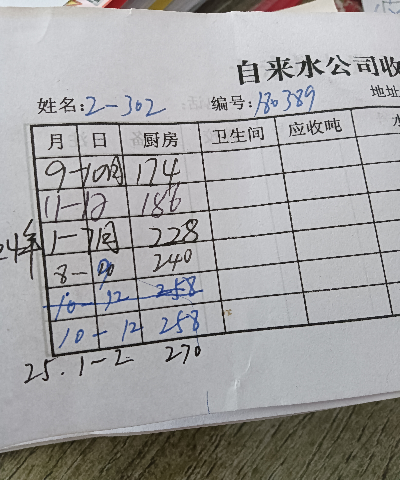 自来水公司收
姓名: 2-302 编号: 180389 地址
月 日 厨房 卫生间 应收吨
9-10月 174
11-12 186
24年 1-7月 228
8- 240
10-12 258
10-12 258
25.1-2 270